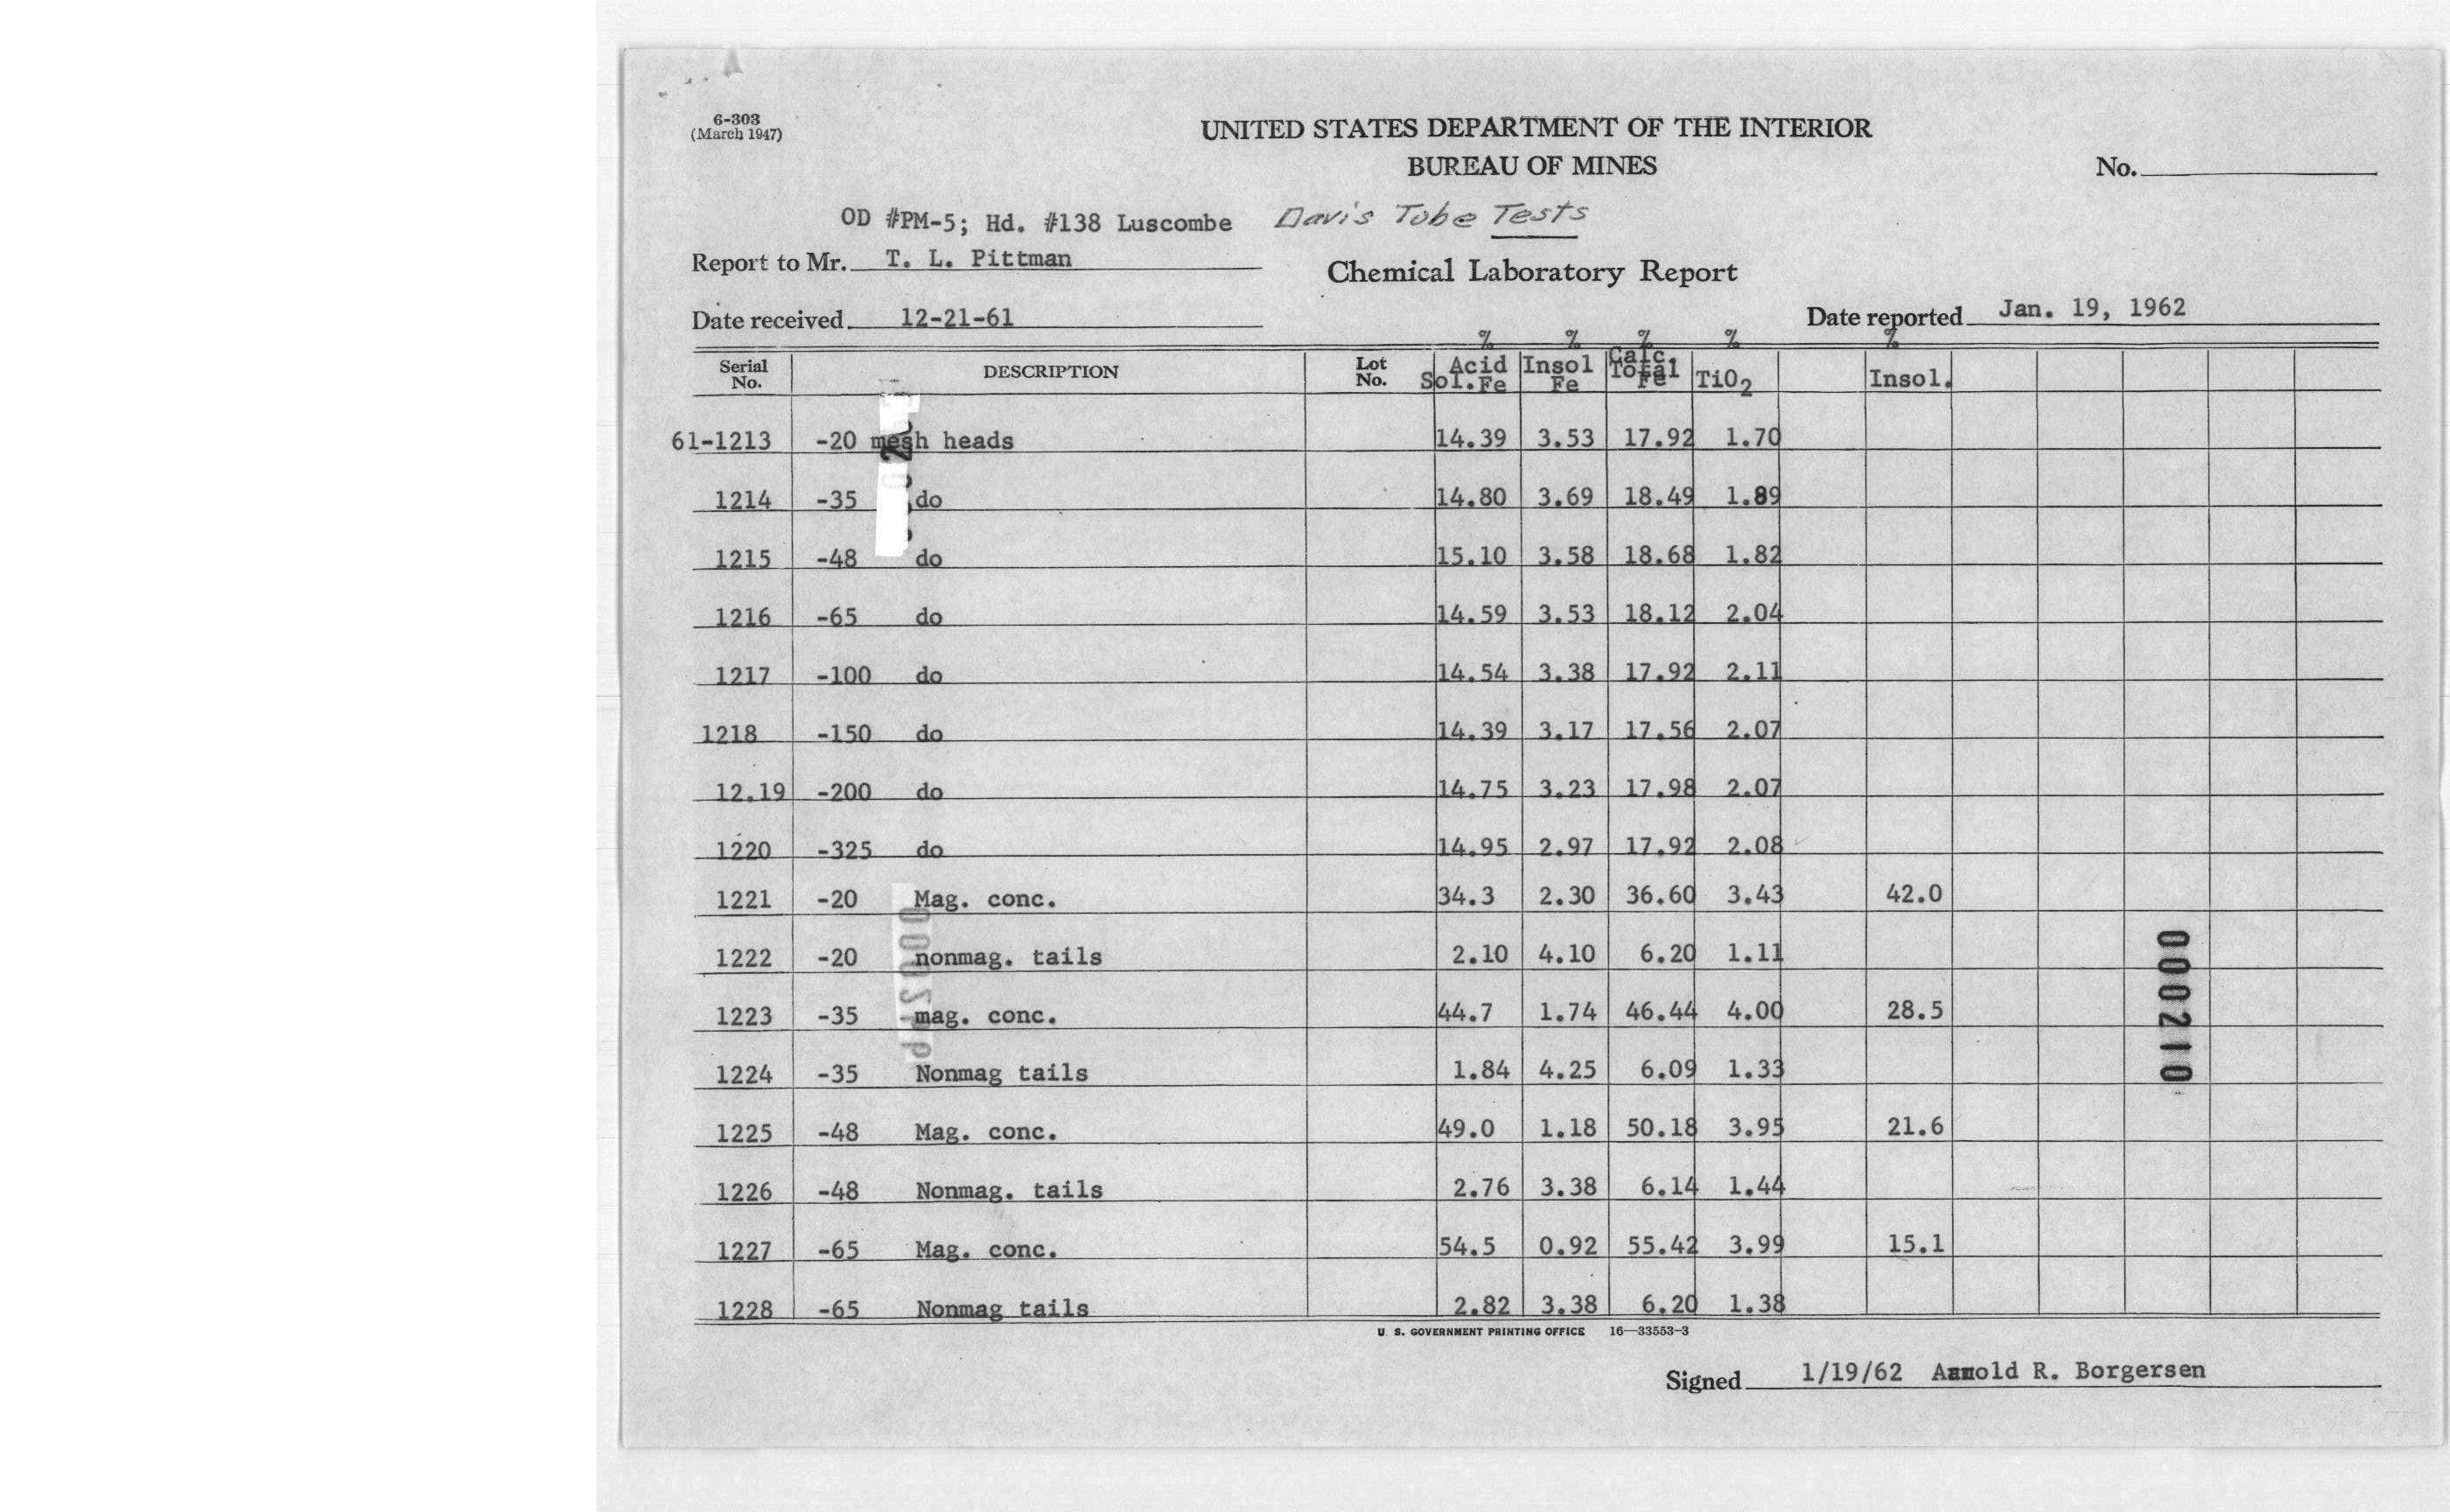 6-303
(March 1947)
UNITED STATES DEPARTMENT OF THE INTERIOR
BUREAU OF MINES
No.
OD #PM-5; Hd. #138 Luscombe Davis Tobe Tests
Report to Mr. T. L. Pittman
Chemical Laboratory Report
Date received 12-21-61
Date reported Jan. 19, 1962
% % % % %
Serial No. DESCRIPTION Lot No. Acid Sol.Fe Insol Fe Calc. Total Fe TiO2 Insol.
61-1213 -20 mesh heads 14.39 3.53 17.92 1.70
1214 -35 do 14.80 3.69 18.49 1.89
1215 -48 do 15.10 3.58 18.68 1.82
1216 -65 do 14.59 3.53 18.12 2.04
1217 -100 do 14.54 3.38 17.92 2.11
1218 -150 do 14.39 3.17 17.56 2.07
12.19 -200 do 14.75 3.23 17.98 2.07
1220 -325 do 14.95 2.97 17.92 2.08
1221 -20 Mag. conc. 34.3 2.30 36.60 3.43 42.0
1222 -20 nonmag. tails 2.10 4.10 6.20 1.11
1223 -35 mag. conc. 44.7 1.74 46.44 4.00 28.5
1224 -35 Nonmag tails 1.84 4.25 6.09 1.33
1225 -48 Mag. conc. 49.0 1.18 50.18 3.95 21.6
1226 -48 Nonmag. tails 2.76 3.38 6.14 1.44
1227 -65 Mag. conc. 54.5 0.92 55.42 3.99 15.1
1228 -65 Nonmag tails 2.82 3.38 6.20 1.38
000210
U. S. GOVERNMENT PRINTING OFFICE 16—33553-3
Signed 1/19/62 Arnold R. Borgersen